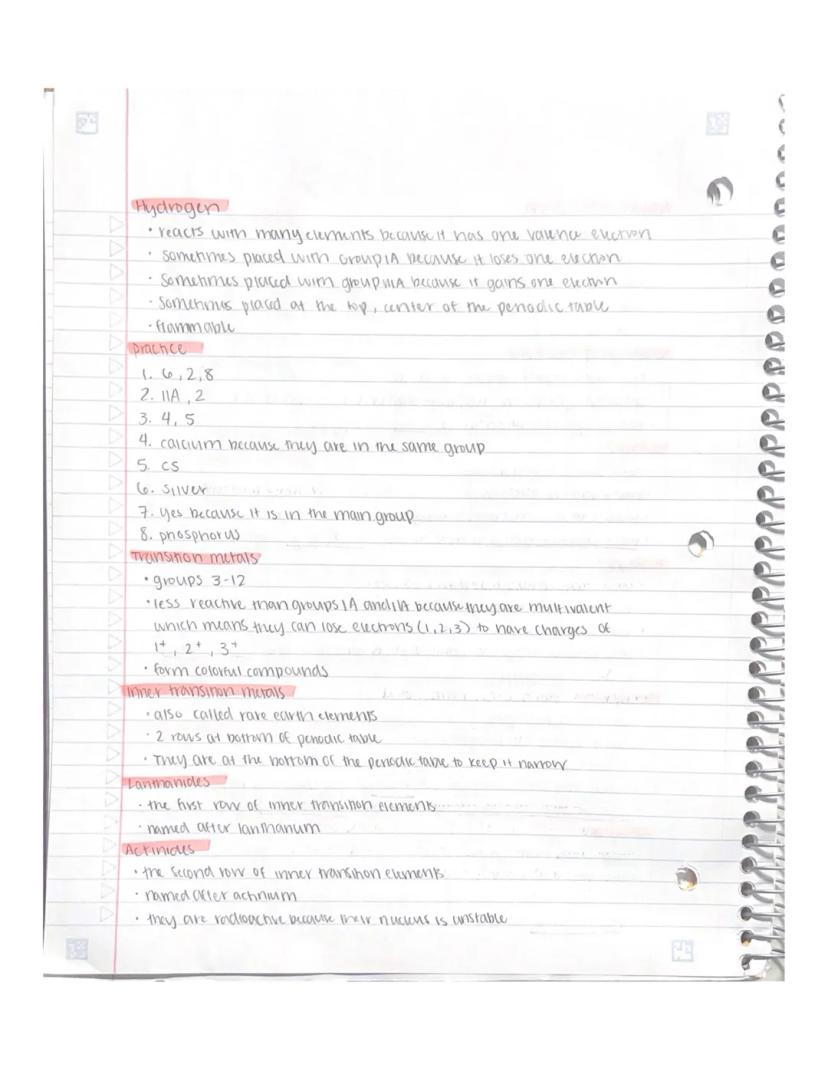 Hydrogen
• reacts with many elements because it has one valence electron
• Sometimes placed with Group IA because it loses one electron
• Sometimes placed with group VIIA because it gains one electron
• Sometimes placed at the top, center of the periodic table
• flammable
practice
1. 6, 2, 8
2. IIA, 2
3. 4, 5
4. calcium because they are in the same group
5. CS
6. silver
7. yes because it is in the main group
8. phosphorus
Transition metals
• groups 3-12
• less reactive than groups IA and IIA because they are multivalent
which means they can lose electrons (1, 2, 3) to have charges of
1⁺, 2⁺, 3⁺
• form colorful compounds
Inner transition metals
• also called rare earth elements
• 2 rows at bottom of periodic table
• They are at the bottom of the periodic table to keep it narrow
Lanthanides
• the first row of inner transition elements
• named after lanthanum
Actinides
• the second row of inner transition elements
• named after actinium
• they are radioactive because their nucleus is unstable